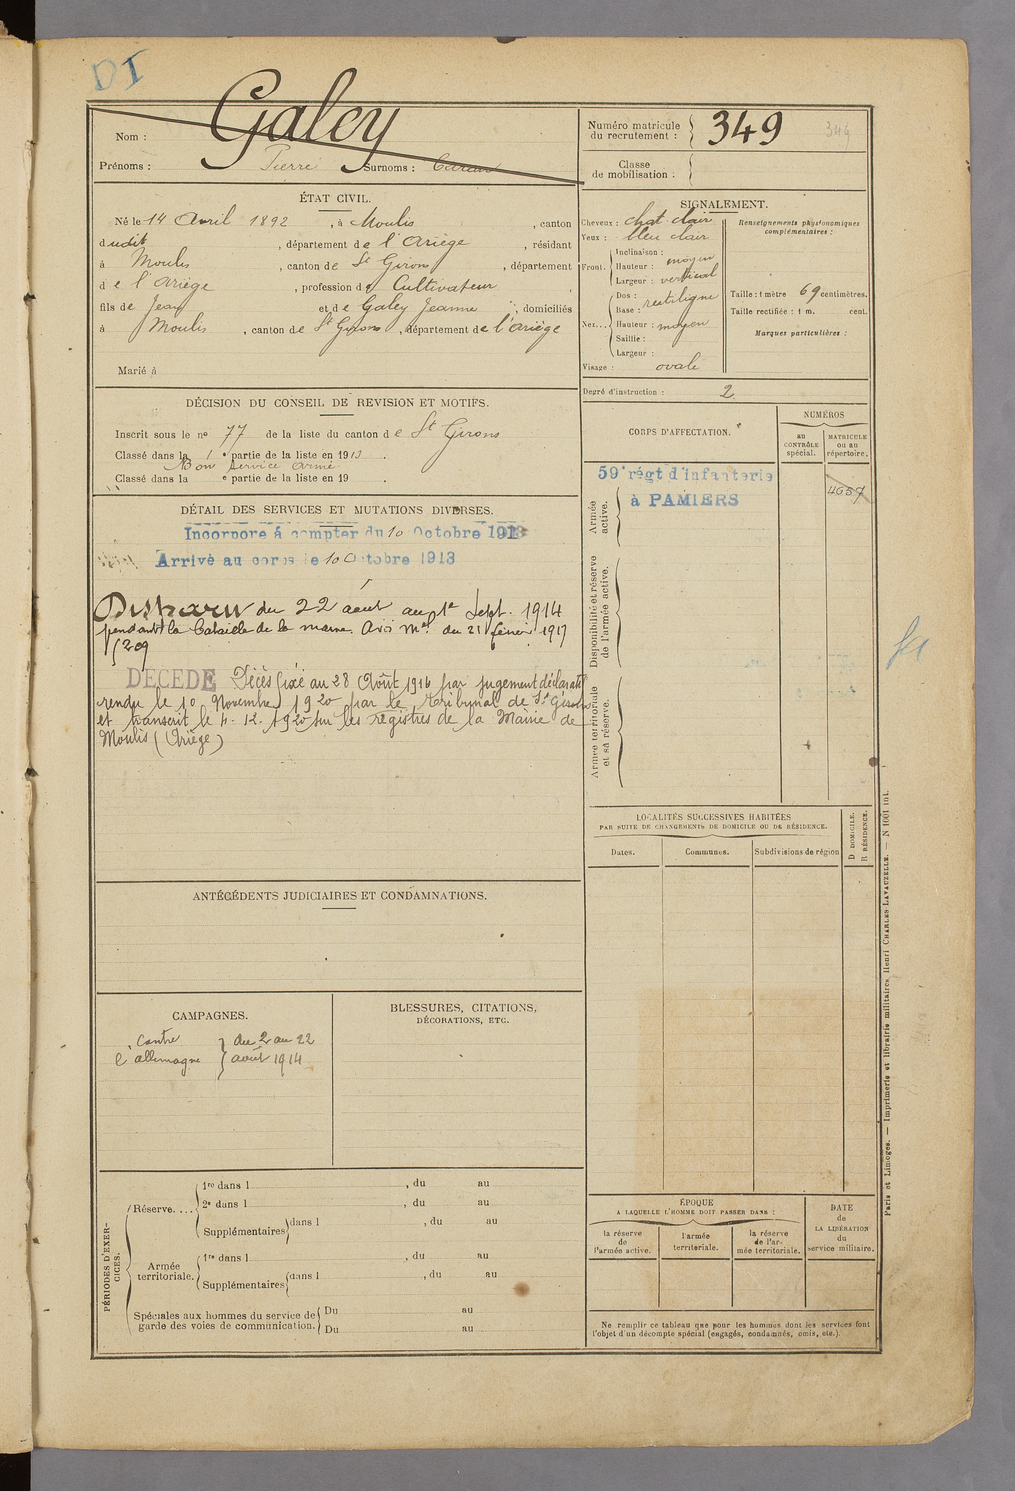 DI
Galey
Nom :
Prénoms : Pierre Surnoms :
Numéro matricule du recrutement : 349
349
Classe de mobilisation :
ÉTAT CIVIL.
Né le 14 Avril 1892, à Moulis, canton
dudit, département de l'Ariège, résidant
à Moulis, canton de St Girons, département
de l'Ariège, profession de Cultivateur,
fils de Jean et de Galey Jeanne ; domiciliés
à Moulis, canton de St Girons, département de l'Ariège
Marié à
SIGNALEMENT.
Cheveux : chat clair
Yeux : bleu clair
Front. Inclinaison :
Hauteur : moyen
Largeur : vertical
Nez... Dos : rectiligne
Base :
Hauteur : moyen
Saillie :
Largeur :
Visage : ovale
Renseignements physionomiques complémentaires :
Taille : 1 mètre 69 centimètres.
Taille rectifiée : 1 m. cent.
Marques particulières :
Degré d'instruction : 2
DÉCISION DU CONSEIL DE REVISION ET MOTIFS.
Inscrit sous le no 77 de la liste du canton de St Girons
Classé dans la 1e partie de la liste en 1913.
Bon service armé
Classé dans la e partie de la liste en 19 .
DÉTAIL DES SERVICES ET MUTATIONS DIVERSES.
Incorporé à compter du 10 Octobre 1913
Arrivé au corps le 10 Octobre 1913
Disparu du 22 août au 1er Sept. 1914
pendant la bataille de la marne. Avis mel du 21 février 1917
DECEDE Décès fixé au 28 Août 1916 par jugement déclaratif
rendu le 10 Novembre 1920 par le tribunal de St Girons
et transcrit le 4-12-1920 sur les registres de la Mairie de
Moulis (Ariège)
CORPS D'AFFECTATION.
NUMÉROS
au CONTRÔLE spécial.
MATRICULE ou au répertoire.
59e régt d'infanterie
à PAMIERS
4657
Armée active.
Disponibilité et réserve de l'armée active.
Armée territoriale et sa réserve.
LOCALITÉS SUCCESSIVES HABITÉES
PAR SUITE DE CHANGEMENTS DE DOMICILE OU DE RÉSIDENCE.
Dates.
Communes.
Subdivisions de région
D DOMICILE.
R RÉSIDENCE.
ANTÉCÉDENTS JUDICIAIRES ET CONDAMNATIONS.
CAMPAGNES.
contre du 2 au 22
l'allemagne août 1914
BLESSURES, CITATIONS,
DÉCORATIONS, ETC.
PÉRIODES D'EXERCICES.
Réserve.... 1re dans l , du au
2e dans l , du au
Supplémentaires dans l , du au
Armée territoriale. 1re dans l , du au
Supplémentaires dans l , du au
Spéciales aux hommes du service de garde des voies de communication. Du au
Du au
ÉPOQUE
A LAQUELLE L'HOMME DOIT PASSER DANS :
la réserve de l'armée active.
l'armée territoriale.
la réserve de l'armée territoriale.
DATE de LA LIBÉRATION du service militaire.
Ne remplir ce tableau que pour les hommes dont les services font
l'objet d'un décompte spécial (engagés, condamnés, omis, etc.).
Paris et Limoges. — Imprimerie et librairie militaires Henri CHARLES-LAVAUZELLE. — N 1001 int.